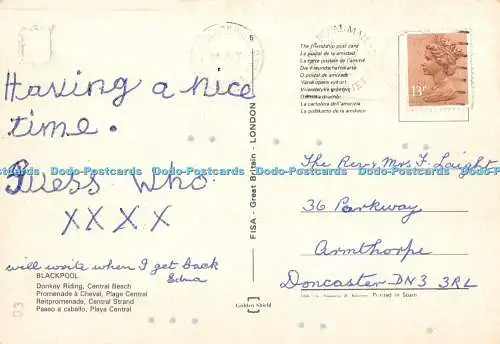 Having a nice
time.
Guess Who.
XXXX
will write when I get back
Edna
BLACKPOOL
Donkey Riding, Central Beach
Promenade à Cheval, Plage Central
Reitpromenade, Central Strand
Paseo a caballo, Playa Central
FISA - Great Britain - LONDON
Golden Shield
The friendship post card
La postal de la amistad
La carte postale de l'amitié
Die Freundschaftskarte
O postal da amizade
Vänskapens vykort
La cartolina dell'amicizia
13P
The Rev & Mrs F. Laight
36 Parkway
Armthorpe
Doncaster DN3 3RL
Printed in Spain
Dodo-Postcards Dodo-Postcards Dodo-Postcards Dodo-Postcards Dodo-Postcards